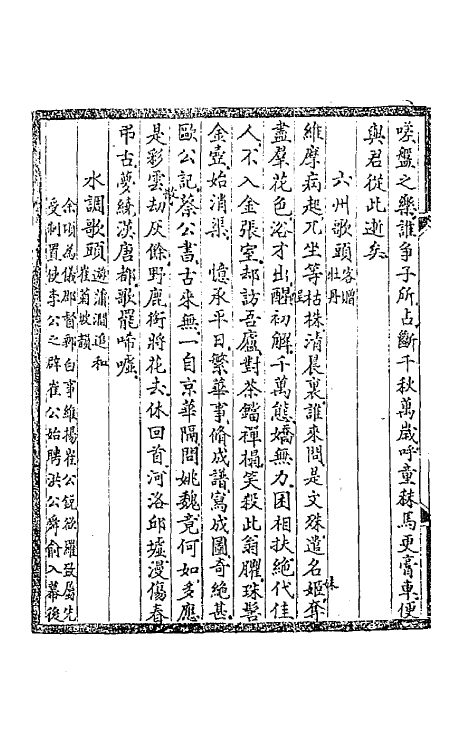 嗟盤之樂誰爭子所占斷千秋萬歲呼童秣馬更膏車便
與君從此逝矣
六州歌頭客贈牡丹
維摩病起兀坐等枯株清晨裏誰來問是文殊遣名姬奪
盡羣花色浴才出酲初解千萬態嬌無力困相扶絶代佳
人不入金張室却訪吾廬對茶鐺禪榻笑殺此翁臞珠髻
金壺始消渠 憶承平日繁華事脩成譜寫成圖奇絶甚
歐公記蔡公書古來無一自京華隔問姚魏竟何如多應
是彩雲劫灰餘野鹿銜將花去休回首河洛邱墟漫傷春
弔古夢繞漢唐都歌罷啼嘘
水調歌頭遊蒲澗追和崔菊坡韻
余頃為儀郡督郵白事維揚崔公鋭欲羅致屬先
受制置使李公之辟崔公始聘洪公舜俞入幕後